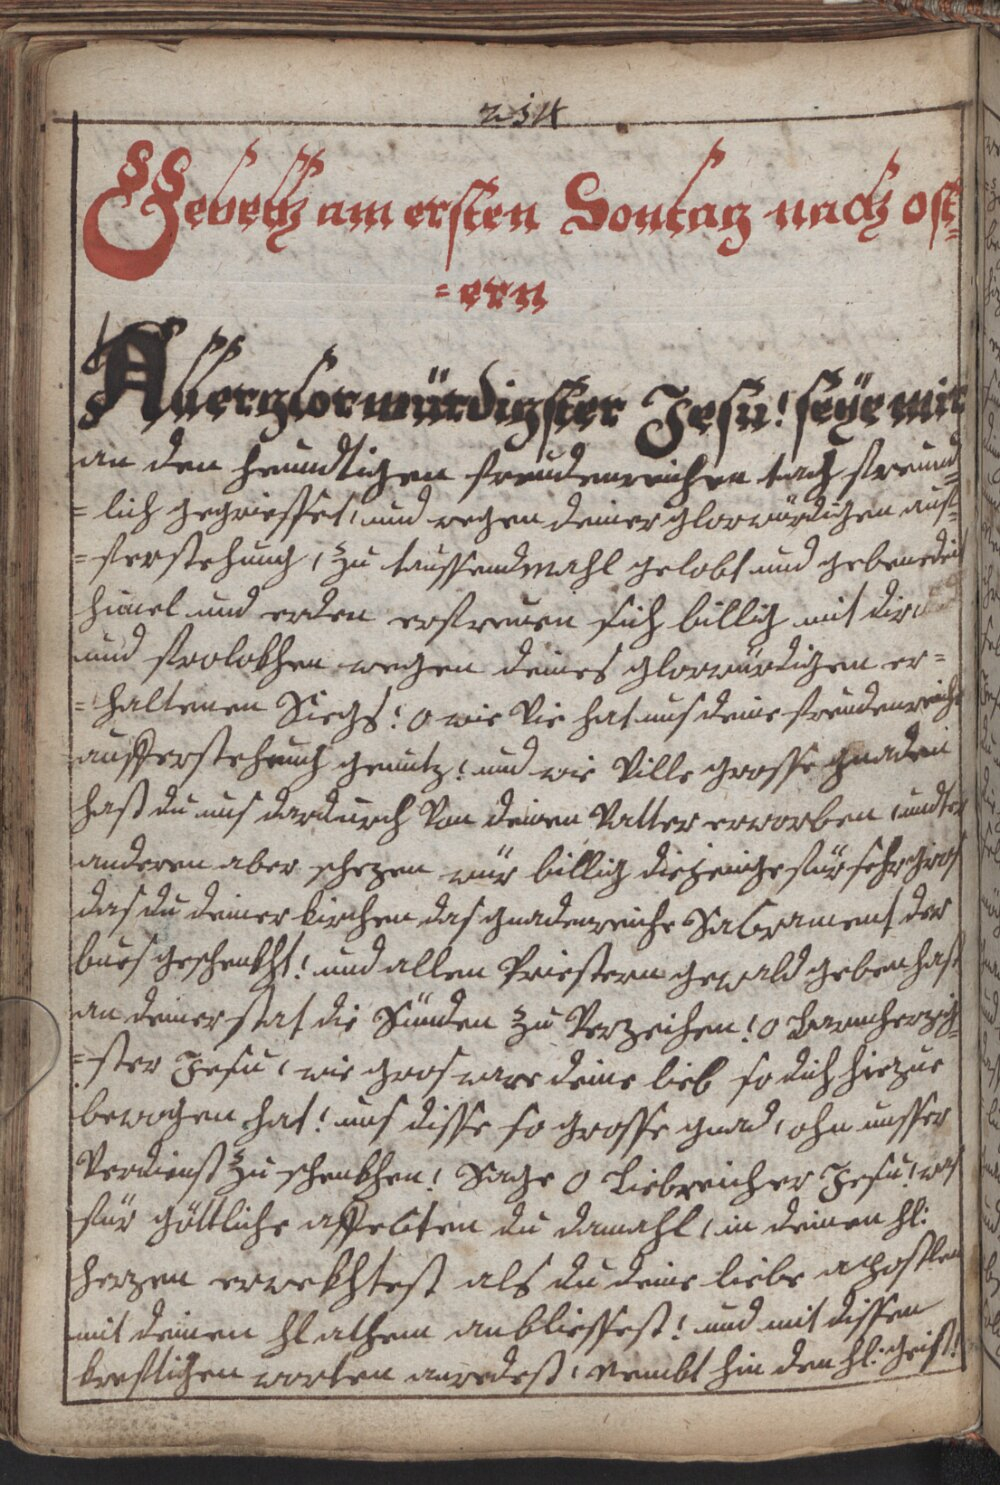 234
Gebett am ersten Sontag nach ost
= ern
Allerglorwürdigster Jesu! seÿe mir
an den heündtigen freudenreichen tag freund
= lich gegriesset, und wegen deiner glorwürdigen auf=
= ferstehung, zu taussendmahl gelobt und gebenedeit
himel und erden erfreuen sich billig mit dir
und frolokhen wegen deines glorwürdigen er=
= haltenen Siegs! o wie vie hat uns deine freudenreiche
aufferstehung genutz! und wie ville grosse gnaden
hast du uns dardurch von deinen Vatter erworben, undter
anderen aber schezen wür billig diejenige für sehr gros
das du deiner kirchen das gnadenreiche Sacrament der
bues geschenkht! und allen Priestern gewald geben hast
an deiner stat die Sünden zu verzeihen! o barmherzig=
= ster Jesu, wie gros ware deine lieb so dich hiezue
bewogen hat! uns disse so grosse gnad, ohn unsser
Verdienst zu schenkhen! Sage o Liebreicher Jesu! was
für göttliche affecten du damahl, in deinen hl:
herzen erwekhtest als du deine liebe apostlen
mit deinen hl athem anbliessest! und mit dissen
kreftigen worten anredest, Nembt hin den hl: geist!